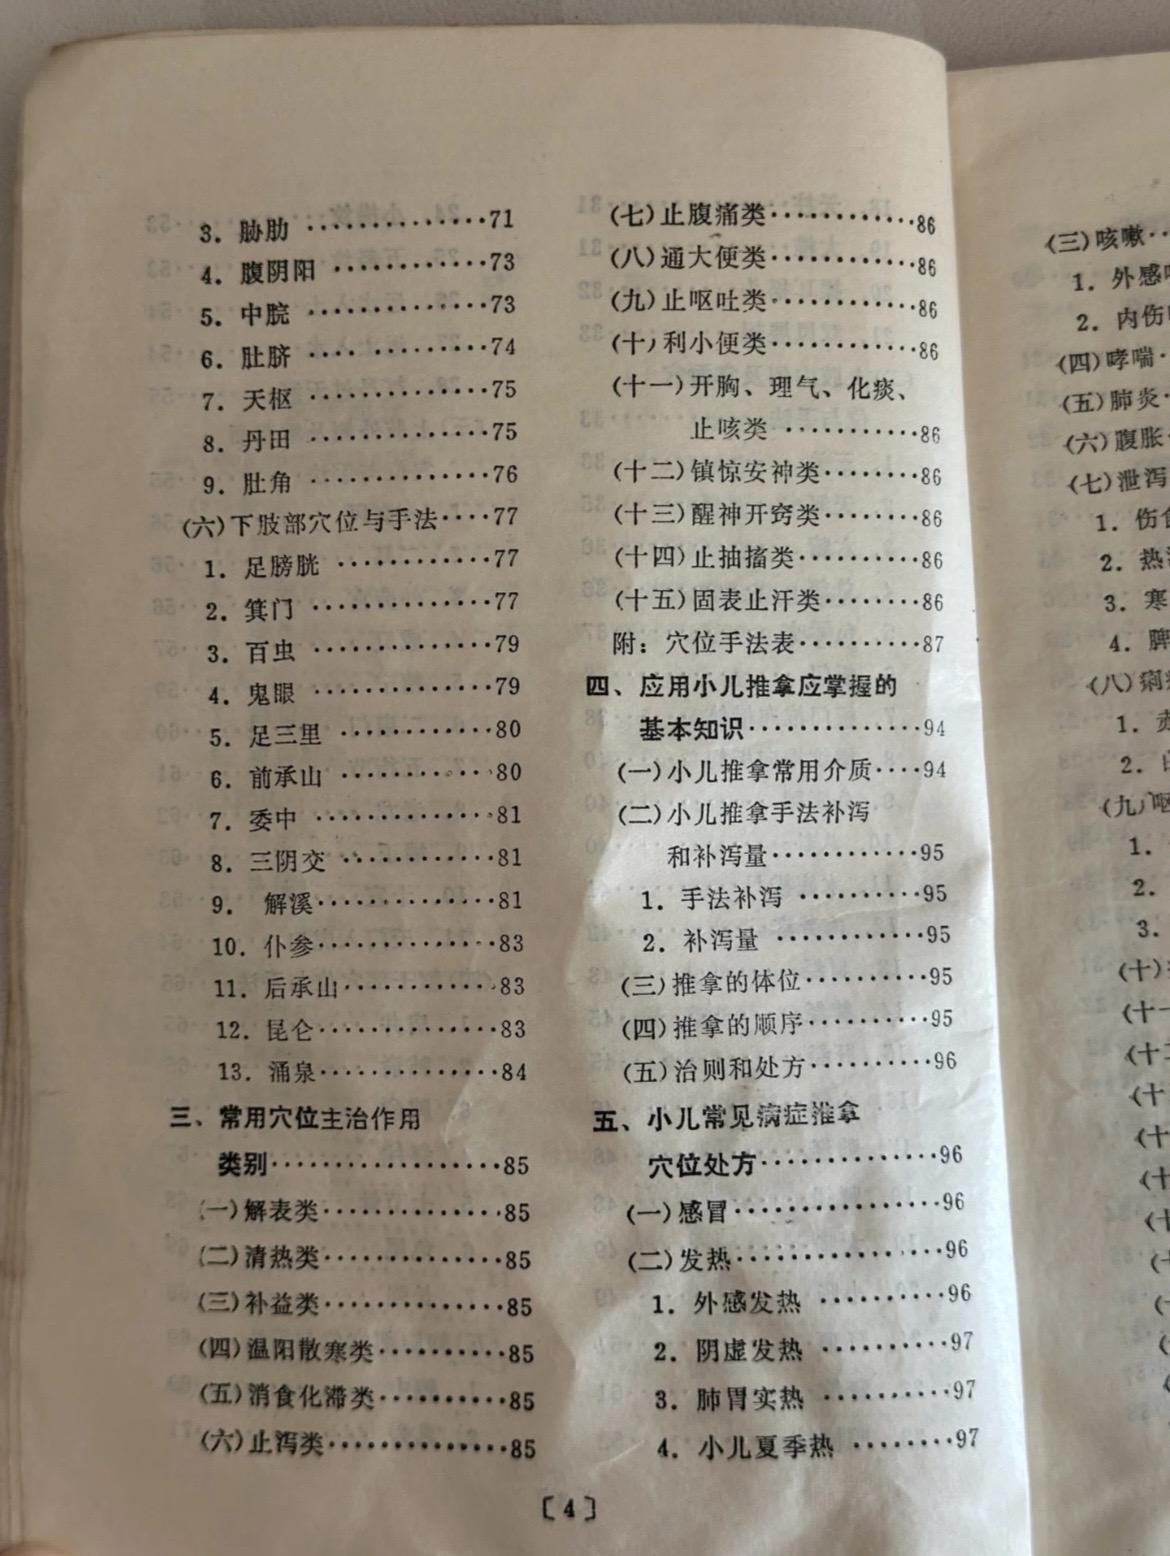 3. 胁肋 ·············71
4. 腹阴阳 ············73
5. 中脘 ·············73
6. 肚脐 ···· ········74
7. 天枢 ·············75
8. 丹田 ·············75
9. 肚角 ·············76
(六)下肢部穴位与手法····77
1. 足膀胱 ···········77
2. 箕门 ·············77
3. 百虫 ·············79
4. 鬼眼 ·············79
5. 足三里 ···········80
6. 前承山 ···········80
7. 委中 ·············81
8. 三阴交 ···········81
9. 解溪·············81
10. 仆参·············83
11. 后承山···········83
12. 昆仑·············83
13. 涌泉·············84
三、常用穴位主治作用
类别·················85
(一)解表类·············85
(二)清热类·············85
(三)补益类·············85
(四)温阳散寒类·········85
(五)消食化滞类·········85
(六)止泻类·············85
(七)止腹痛类···········86
(八)通大便类···········86
(九)止呕吐类···········86
(十)利小便类···········86
(十一)开胸、理气、化痰、
止咳类 ··········86
(十二)镇惊安神类·······86
(十三)醒神开窍类·······86
(十四)止抽搐类·········86
(十五)固表止汗类·······86
附: 穴位手法表·········87
四、应用小儿推拿应掌握的
基本知识·············94
(一)小儿推拿常用介质····94
(二)小儿推拿手法补泻
和补泻量···········95
1. 手法补泻 ·········95
2. 补泻量 ···········95
(三)推拿的体位·········95
(四)推拿的顺序·········95
(五)治则和处方·········96
五、小儿常见病症推拿
穴位处方·············96
(一)感冒···············96
(二)发热···············96
1. 外感发热 ·········96
2. 阴虚发热 ·········97
3. 肺胃实热 ·········97
4. 小儿夏季热 ·······97
〔4〕
(三)咳嗽··
1. 外感
2. 内伤
(四)哮喘·
(五)肺炎·
(六)腹胀·
(七)泄泻
1. 伤
2. 热
3. 寒
4. 脾
(八)痢
1.
2.
(九)呕
1.
2.
3.
(十)